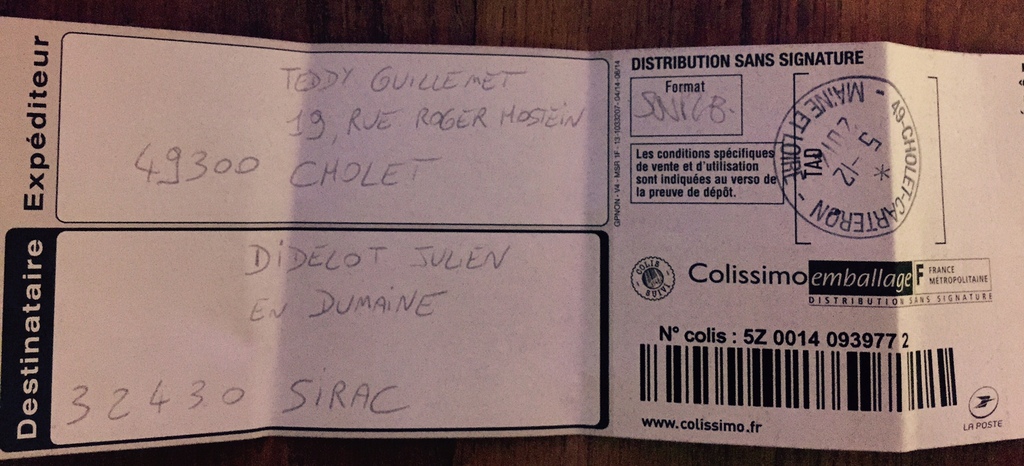 Expéditeur
TEDDY GUILLEMET
19, RUE ROGER HOSTEIN
49300 CHOLET
Destinataire
DIDELOT JULIEN
EN DUMAINE
32430 SIRAC
DISTRIBUTION SANS SIGNATURE
Format
Les conditions spécifiques
de vente et d'utilisation
sont indiquées au verso de
la preuve de dépôt.
49-CHOLET-CARTERON - MAINE ET LOIRE -
5-12
Colissimo emballage F FRANCE MÉTROPOLITAINE
DISTRIBUTION SANS SIGNATURE
N° colis : 5Z 0014 093977 2
www.colissimo.fr
LA POSTE